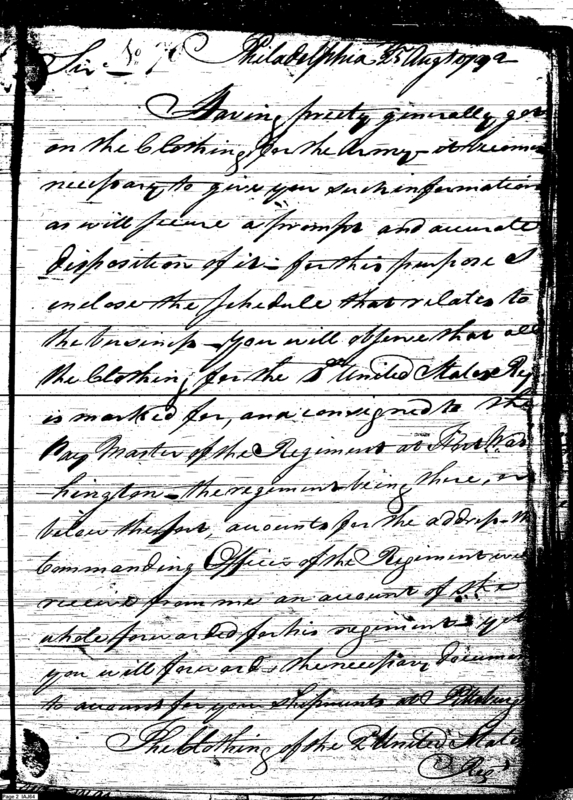 Sir No 7 Philadelphia 25 Aug 1792
Having pretty generally got
on the Clothing, for the Army - it becomes
necessary to give you such information
as will secure a prompt and accurate
disposition of it - for this purpose I
enclose the schedule that relates to
the business - You will observe that all
the Clothing for the United States Reg
is marked for, and consigned to the
Pay Master of the Regiment at Fort Was
hington - the regiment being there, or
below the fort, accounts for the address - the
Commanding Officer of the Regiment will
receive from me an account of the
whole forwarded for his regiment - yet
you will forward the necessary documen
to account for your Shipments at Pittsburg
The Clothing of the 2d United States
Reg